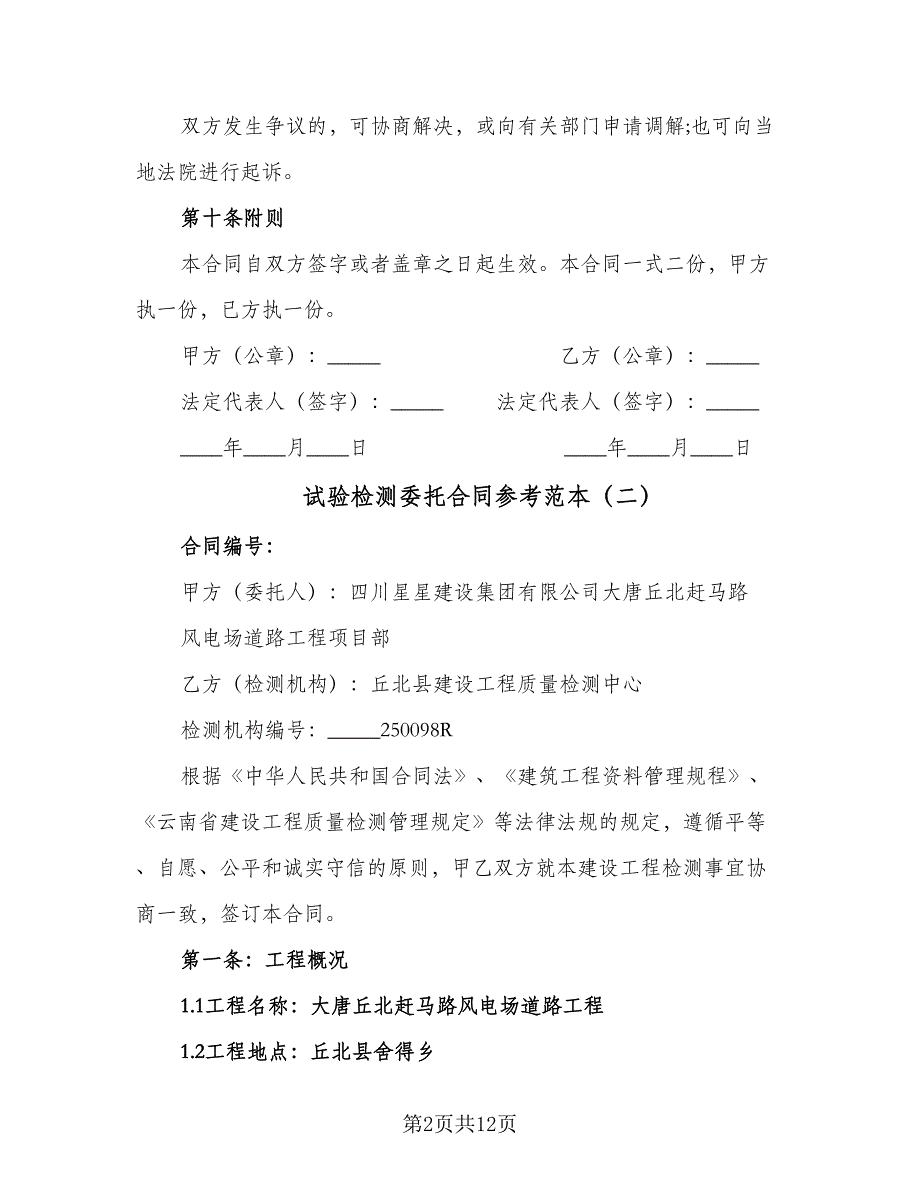 双方发生争议的，可协商解决，或向有关部门申请调解;也可向当
地法院进行起诉。
第十条附则
本合同自双方签字或者盖章之日起生效。本合同一式二份，甲方
执一份，已方执一份。
甲方（公章）：_____ 乙方（公章）：_____
法定代表人（签字）：_____ 法定代表人（签字）：_____
____年____月____日 ____年____月____日
试验检测委托合同参考范本（二）
合同编号：
甲方（委托人）：四川星星建设集团有限公司大唐丘北赶马路
风电场道路工程项目部
乙方（检测机构）：丘北县建设工程质量检测中心
检测机构编号：_____250098R
根据《中华人民共和国合同法》、《建筑工程资料管理规程》、
《云南省建设工程质量检测管理规定》等法律法规的规定，遵循平等
、自愿、公平和诚实守信的原则，甲乙双方就本建设工程检测事宜协
商一致，签订本合同。
第一条：工程概况
1.1工程名称：大唐丘北赶马路风电场道路工程
1.2工程地点：丘北县舍得乡
第2页共12页